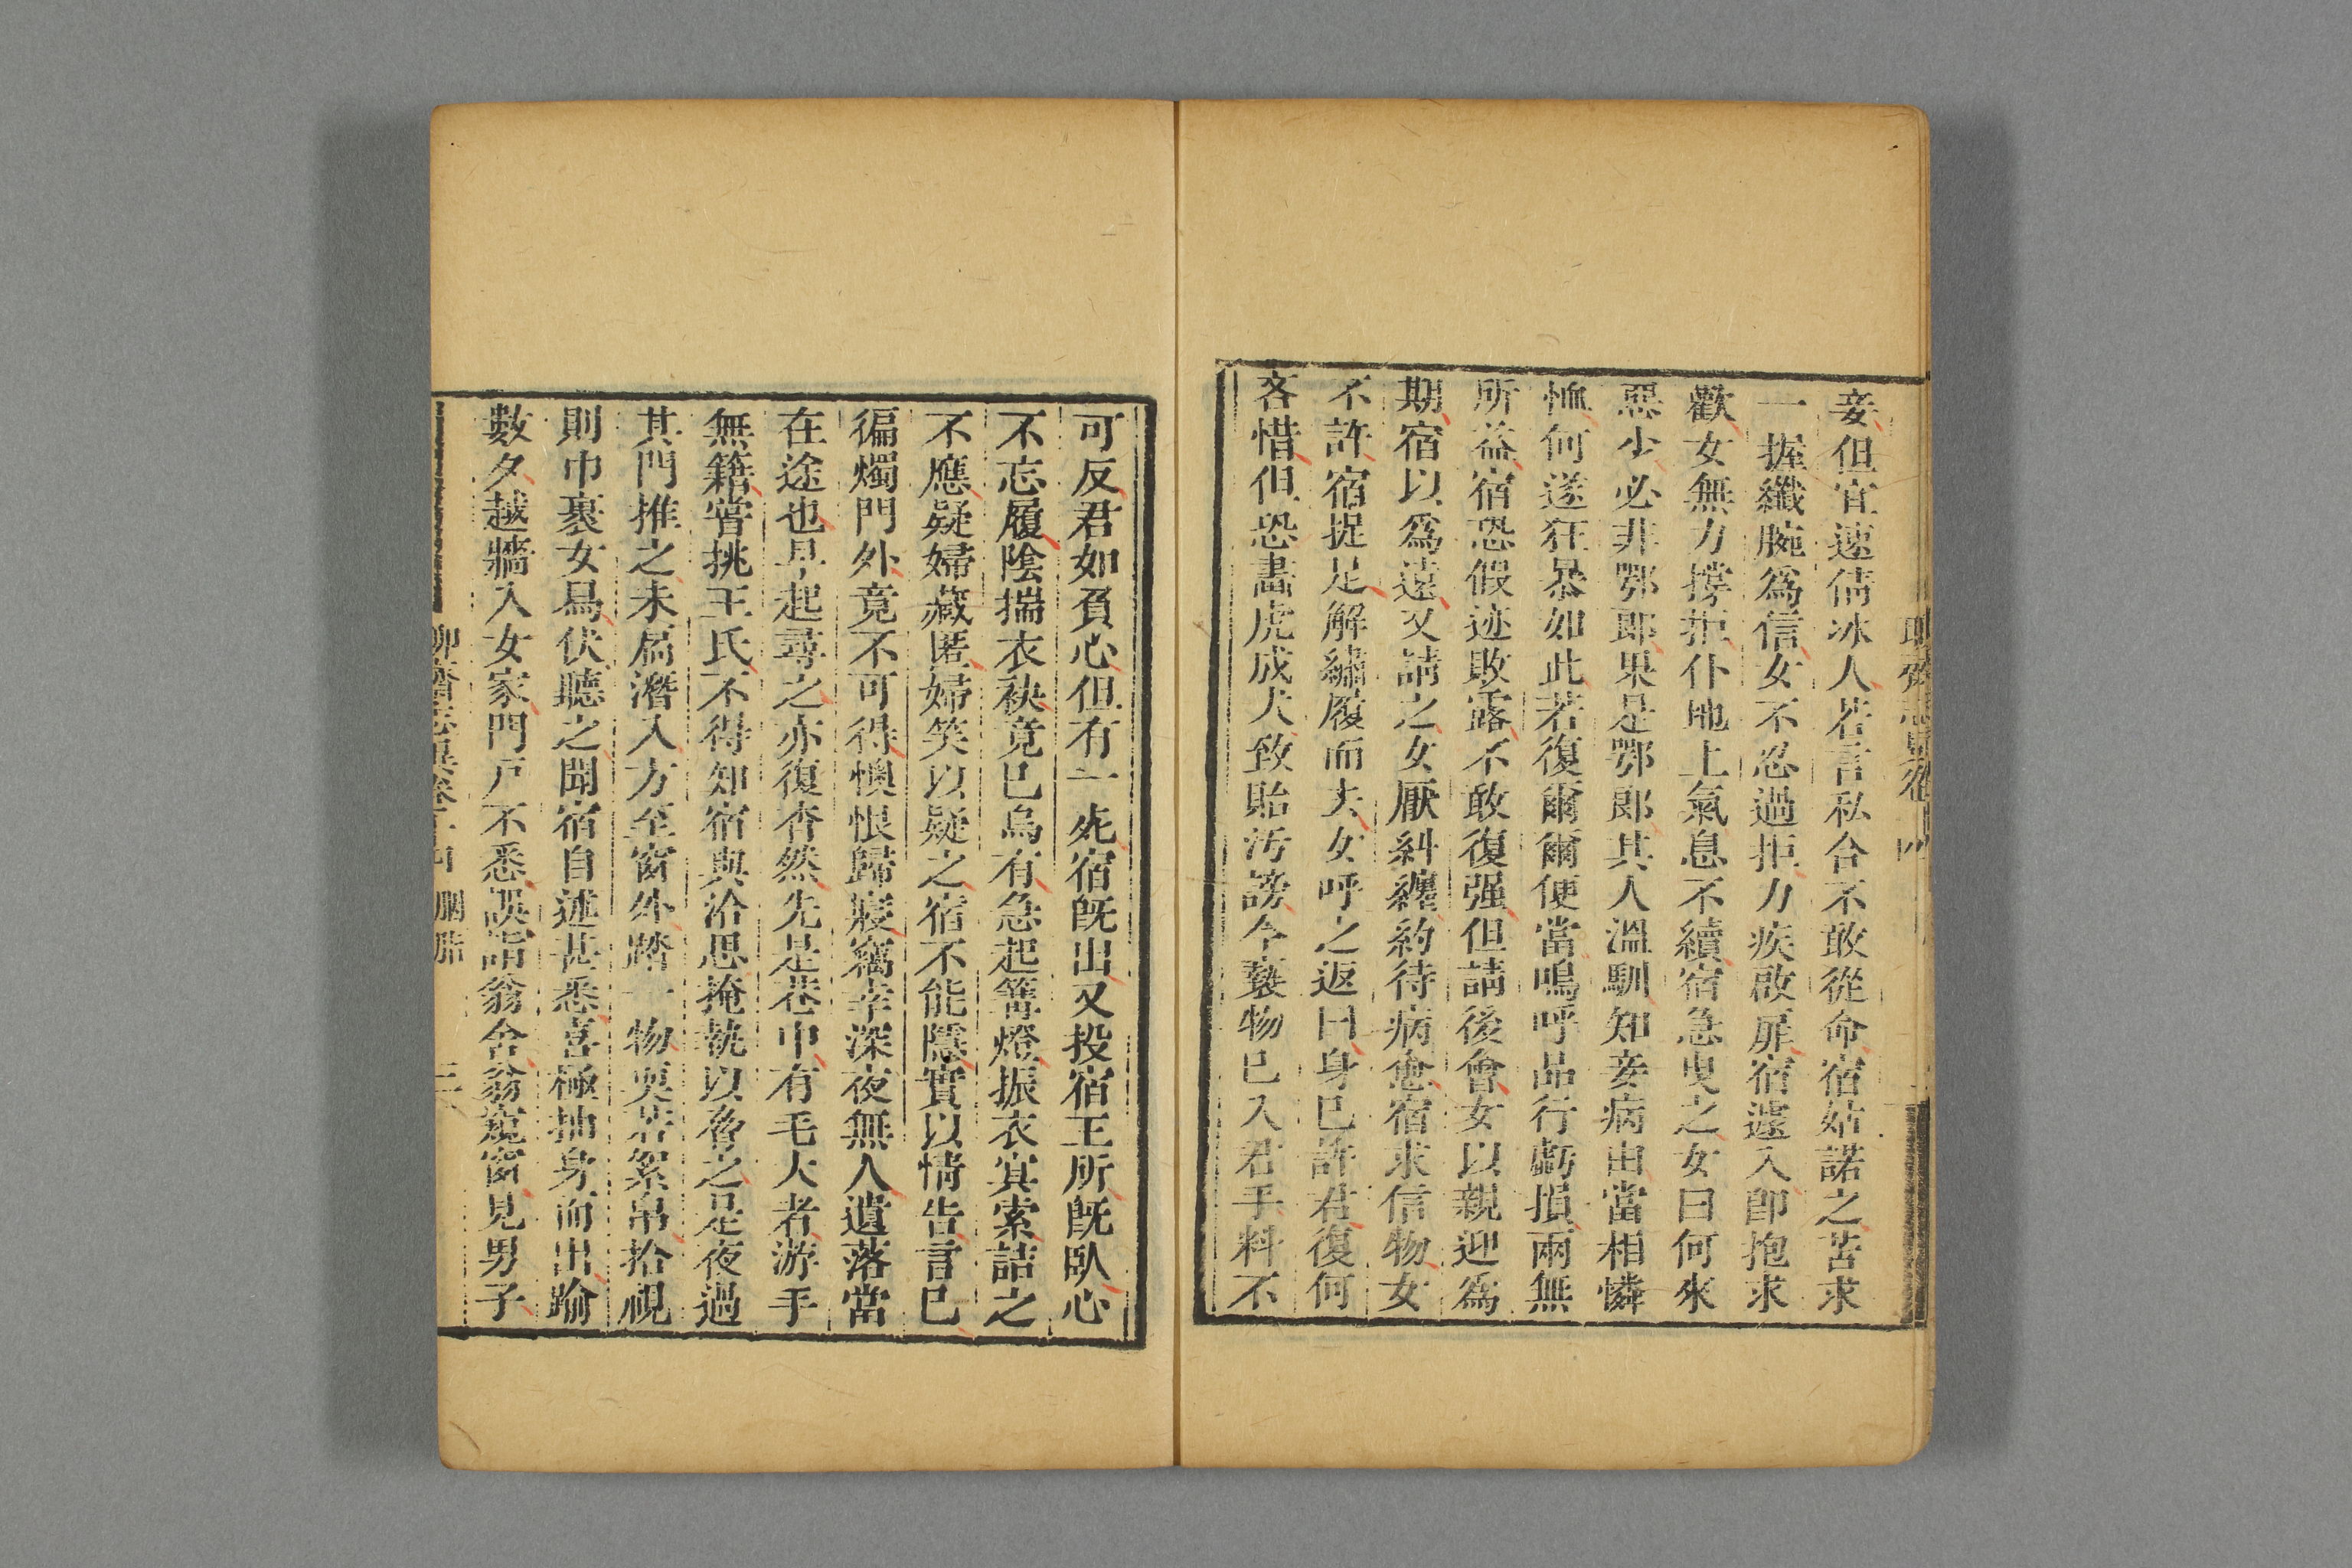 妾但宜速倩冰人若言私合不敢從命宿姑諾之苦求
一握纖腕爲信女不忍過拒力疾啟扉宿遽入卽抱求
歡女無力撐拒仆地上氣息不續宿急曳之女曰何來
惡少必非鄂郎果是鄂郎其人溫馴知妾病由當相憐
恤何遂狂暴如此若復爾爾便當鳴呼品行虧損兩無
所益宿恐假迹敗露不敢復强但請後會女以親迎爲
期宿以爲遠又請之女厭糾纏約待病愈宿求信物女
不許宿捉足解繡履而去女呼之返曰身已許君復何
吝惜但恐畫虎成犬致貽汚謗今褻物已入君手料不
可反君如負心但有一死宿旣出又投宿王所旣臥心
不忘履陰揣衣袂竟已烏有急起篝燈振衣冥索詰之
不應疑婦藏匿婦笑以疑之宿不能隱實以情告言已
徧燭門外竟不可得懊恨歸寢竊幸深夜無人遺落當
在途也早起尋之亦復杳然先是巷中有毛大者游手
無籍嘗挑王氏不得知宿與洽思掩執以脅之是夜過
其門推之未扃潛入方至窗外踏一物耎若絮帛拾視
則巾裹女舄伏聽之聞宿自述甚悉喜極抽身而出踰
數夕越牆入女家門戶不悉誤詣翁舍翁窺窗見男子
胭脂 三